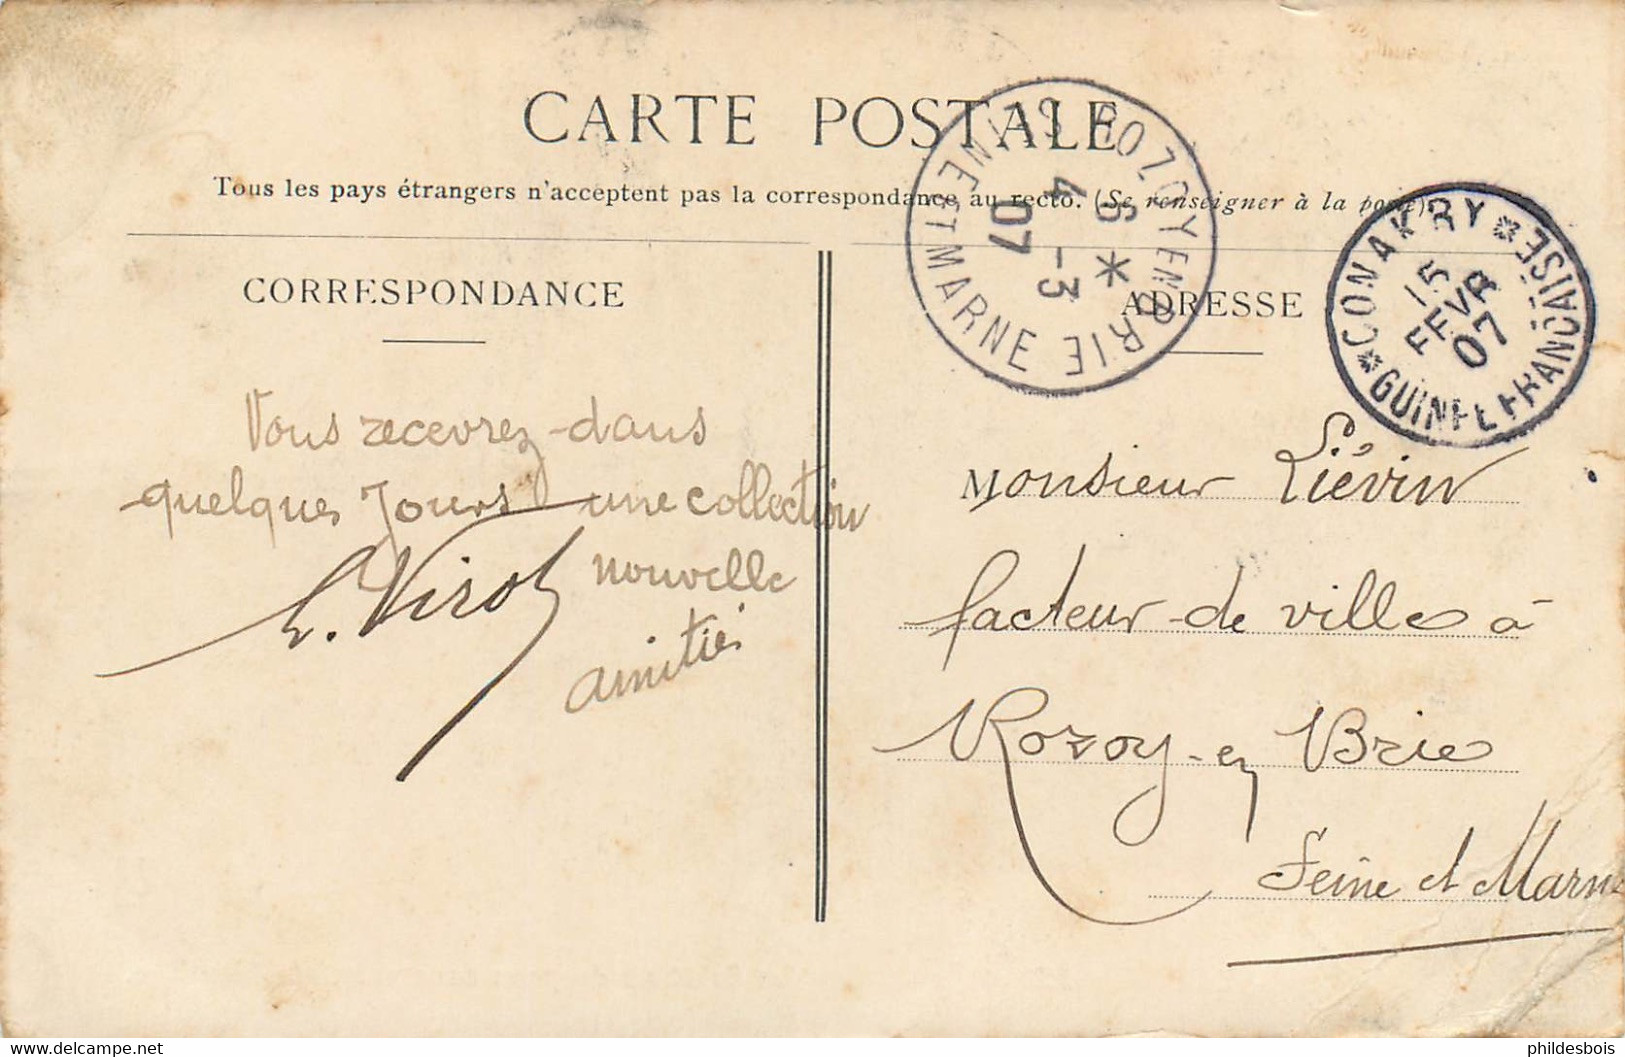 CARTE POSTALE
Tous les pays étrangers n'acceptent pas la correspondance au recto. (Se renseigner à la poste)
CORRESPONDANCE
Vous recevrez dans
quelques Jours une collection
nouvelle
amitiés
ADRESSE
Monsieur Liévin
facteur de ville à
Rozoy-en Brie
Seine et Marne
ROZOY EN BRIE
SEINE ET MARNE
6 *
4 -3
07
CONAKRY
GUINÉE FRANÇAISE
15
FEVR
07
phildesbois